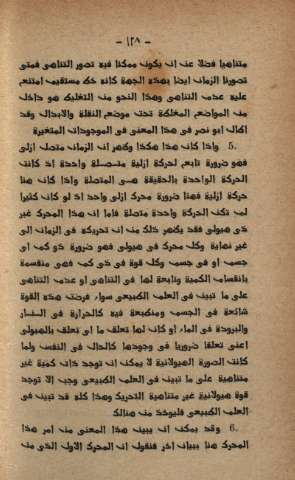 — ١٢٨ —
متناهيا فضلا عن ان يكون ممكنا فيه تصور التناهى فمتى
تصورنا الزمان ايضا بهذه الجهة كانه خط مستقيم امتنع
عليه عدم التناهى وهذا النحو من التغليط هو داخل
من المواضع المغلطة تحت موضع النقلة والابدال وقد
اطال ابو نصر فى هذا المعنى فى الموجودات المتغيرة
5. واذا كان هذا هكذا وظهر ان الزمان متصل ازلى
فهو ضرورة تابع لحركة ازلية متصلة واحدة اذ كانت
الحركة الواحدة بالحقيقة هى المتصلة واذا كان هنا
حركة ازلية فهنا ضرورة محرك ازلى واحد اذ لو كان كثيرا
لم تكن الحركة واحدة متصلة فاما ان هذا المحرك غير
ذى هيولى فقد يظهر ذلك من ان تحريكه فى الزمان الى
غير نهاية وكل محرك فى هيولى فهو ضرورة ذو كم اى
جسم او فى جسم وكل قوة فى ذى كم فهى منقسمة
بانقسام الكمية وتابعة لها فى التناهى او عدم التناهى
على ما تبين فى العلم الطبيعى سواء فرضت هذه القوة
شائعة فى الجسم ومنطبعة فيه كالحرارة فى النار
والبرودة فى الماء او كان لها تعلق ما اى تعلق بالهيولى
اعنى تعلقا ضروريا فى وجودها كالحال فى النفس ولما
كانت الصورة الهيولانية لا يمكن ان توجد ذات كمية غير
متناهية على ما تبين فى العلم الطبيعى وجب الا توجد
قوة هيولانية غير متناهية التحريك وهذا كله قد تبين فى
العلم الطبيعى فليوخذ من هنالك
6. وقد يمكن ان يبين هذا المعنى من امر هذا
المحرك هنا ببيان اخر فنقول ان المحرك الاول الذى من